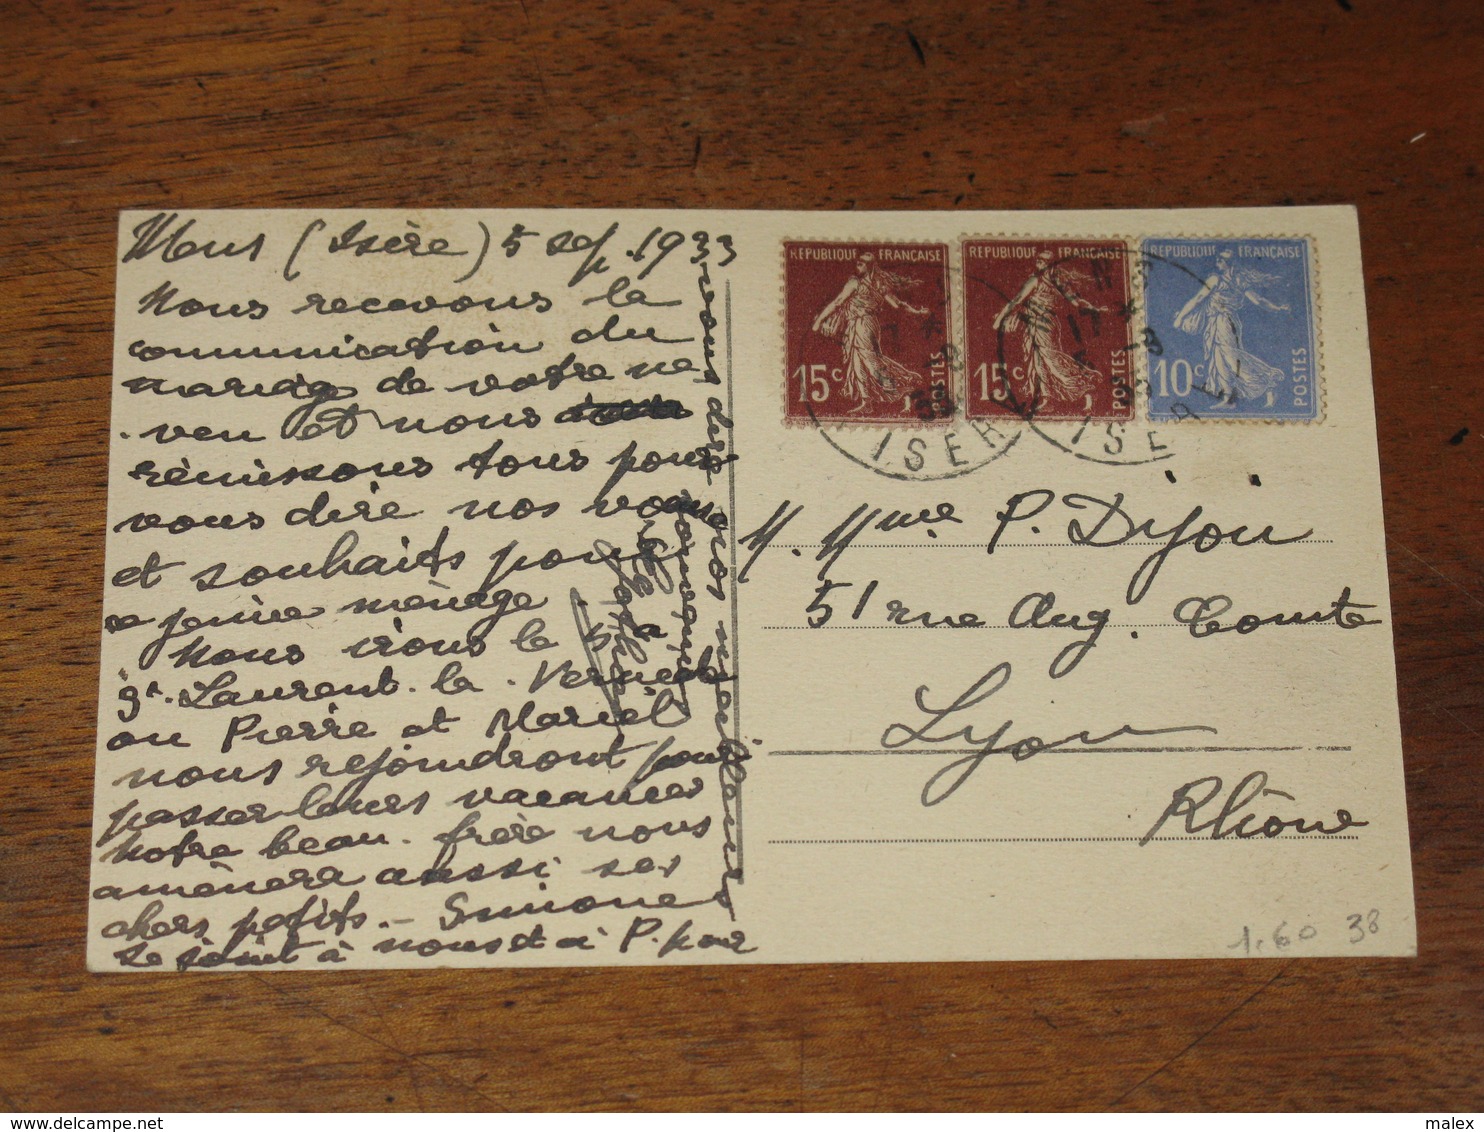 Mens (Isère) 5 sep. 1933
Nous recevons la
communication du
mariage de votre ne-
veu et nous
réunissons tous pour
vous dire nos voeux
et souhaits pour
ce jeune ménage.
Nous irons le 5 à
St. Laurent-la-Vernède
où Pierre et Mariel
nous rejoindront pour
passer leurs vacances
Notre beau-frère nous
amènera aussi ses
chers petits. - Simone
se joint à nous et à P. pour
vous dire nos meilleurs
Sophie
REPUBLIQUE FRANÇAISE
15c POSTES
REPUBLIQUE FRANÇAISE
15c POSTES
REPUBLIQUE FRANÇAISE
10c POSTES
17 *
ISERE
MENS
17 *
5 -9
ISERE
M. Mme P. Dijon
51 rue Aug. Comte
Lyon
Rhône
1.60 38
delcampe.net
malex